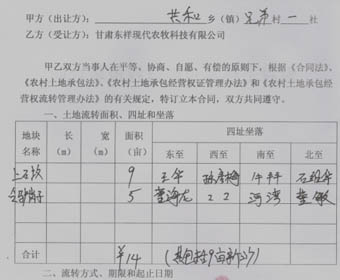 甲方（出让方）： 共和 乡（镇） 兄弟 村 一 社
乙方（受让方）：甘肃东祥现代农牧科技有限公司
甲乙双方当事人在平等、协商、自愿、有偿的原则下，根据《合同法》、
《农村土地承包法》、《农村土地承包经营权证管理办法》和《农村土地承包经
营权流转管理办法》的有关规定，特订立本合同，双方共同遵守。
一、土地流转面积、四址和坐落
地块名称 长（m） 宽（m） 面积（亩） 四址坐落
东至 西至 南至 北至
9 王华
5 董海龙 22 河湾 董敏
合计 ¥14
二、流转方式、期限和起止日期